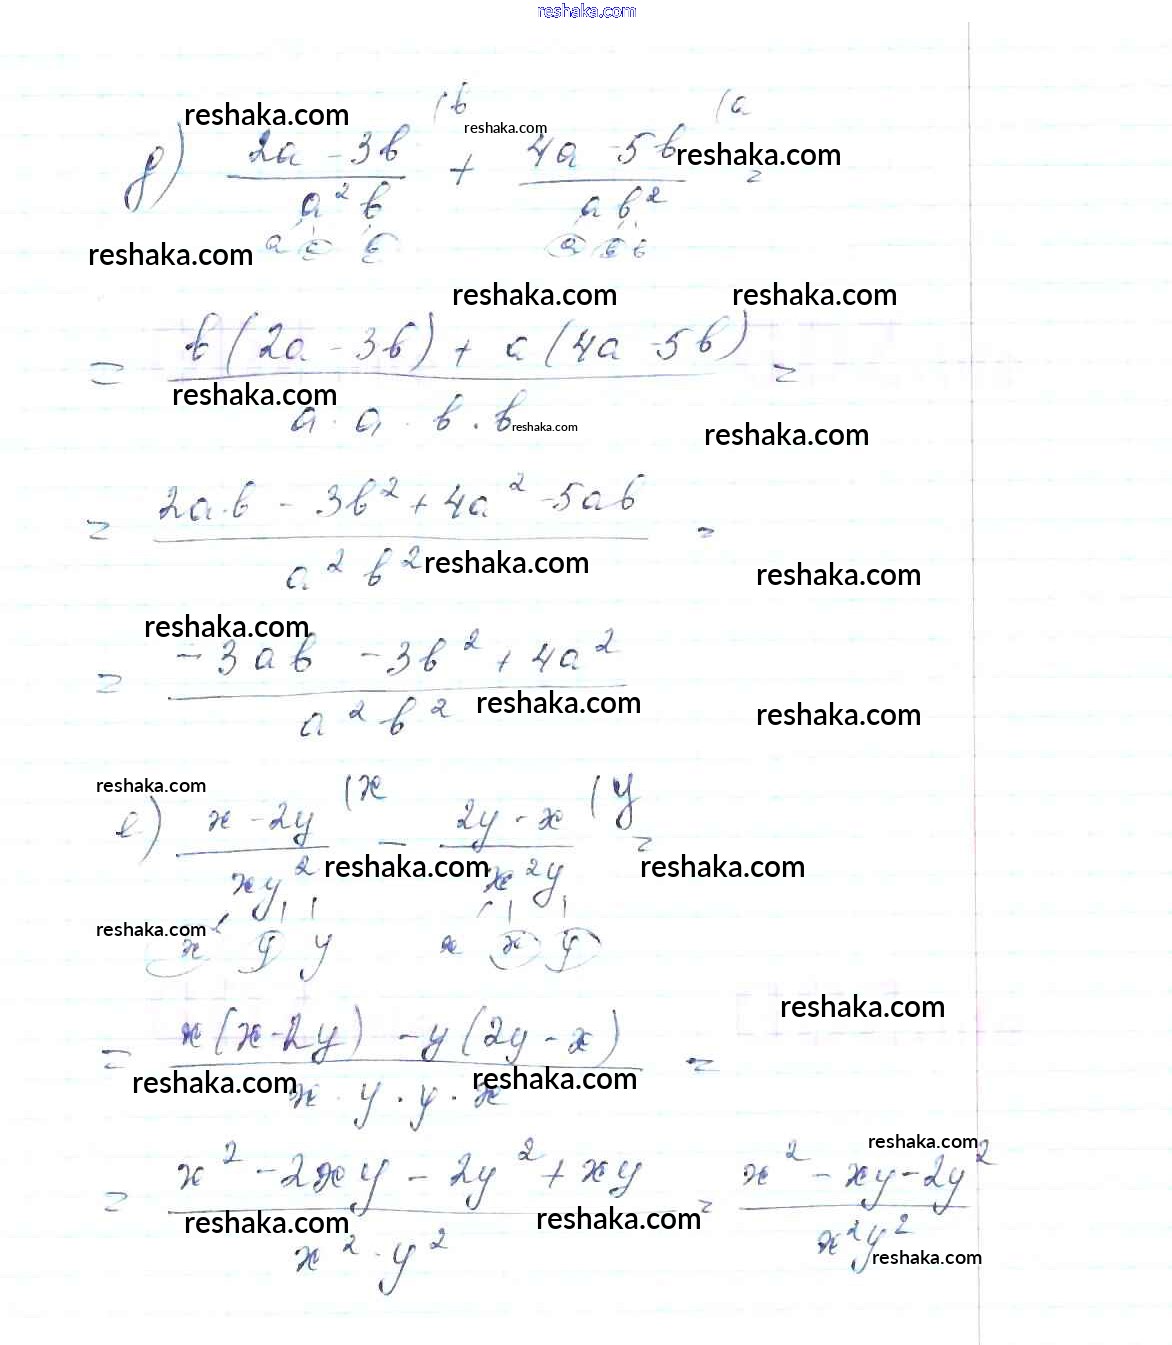 reshaka.com
reshaka.com (b reshaka.com (a
д) (2a - 3b)/(a²b) + (4a - 5b)/(ab²) = reshaka.com
reshaka.com a a b a b b
reshaka.com reshaka.com
= (b(2a - 3b) + a(4a - 5b))/(a · a · b · b) =
reshaka.com reshaka.com reshaka.com
= (2a·b - 3b² + 4a² - 5ab)/(a²b²) =
reshaka.com reshaka.com
reshaka.com
= (-3ab - 3b² + 4a²)/(a²b²)
reshaka.com reshaka.com
reshaka.com (x (y
е) (x - 2y)/(xy²) - (2y - x)/(x²y) =
reshaka.com reshaka.com
reshaka.com x y y x x y
reshaka.com
= (x(x - 2y) - y(2y - x))/(x · y · y · x) =
reshaka.com reshaka.com
reshaka.com
= (x² - 2xy - 2y² + xy)/(x² · y²) = (x² - xy - 2y²)/(x²y²)
reshaka.com reshaka.com reshaka.com